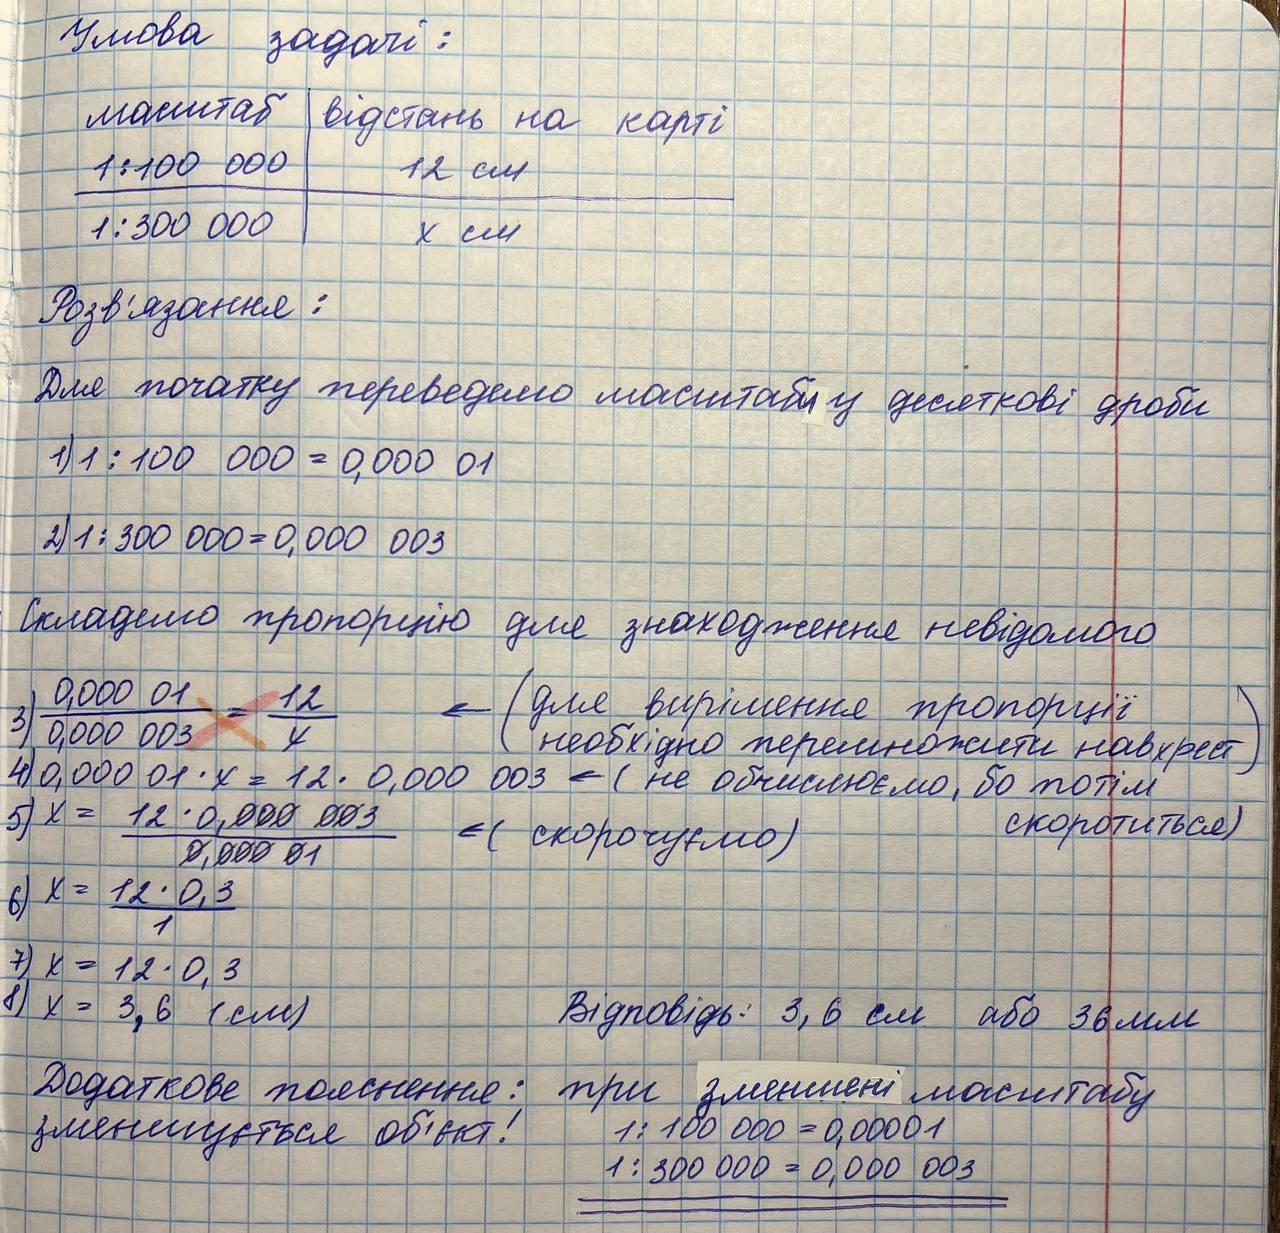 Умова задачі:
масштаб | відстань на карті
1:100 000 | 12 см
1:300 000 | х см
Розв'язання:
Для початку переведемо масштаби у десяткові дроби
1) 1:100 000 = 0,000 01
2) 1:300 000 = 0,000 003
Складемо пропорцію для знаходження невідомого
3) 0,000 01 / 0,000 003 = 12 / х ← (для вирішення пропорції
необхідно перемножити навхрест)
4) 0,000 01 · х = 12 · 0,000 003 ← (не обчислюємо, бо потім
скоротиться)
5) х = 12 · 0,000 003 / 0,000 01 ← (скорочуємо)
6) х = 12 · 0,3 / 1
7) х = 12 · 0,3
8) х = 3,6 (см) Відповідь: 3,6 см або 36 мм
Додаткове пояснення: при зменшені масштабу
зменшується об'єкт! 1:100 000 = 0,00001
1:300 000 = 0,000 003